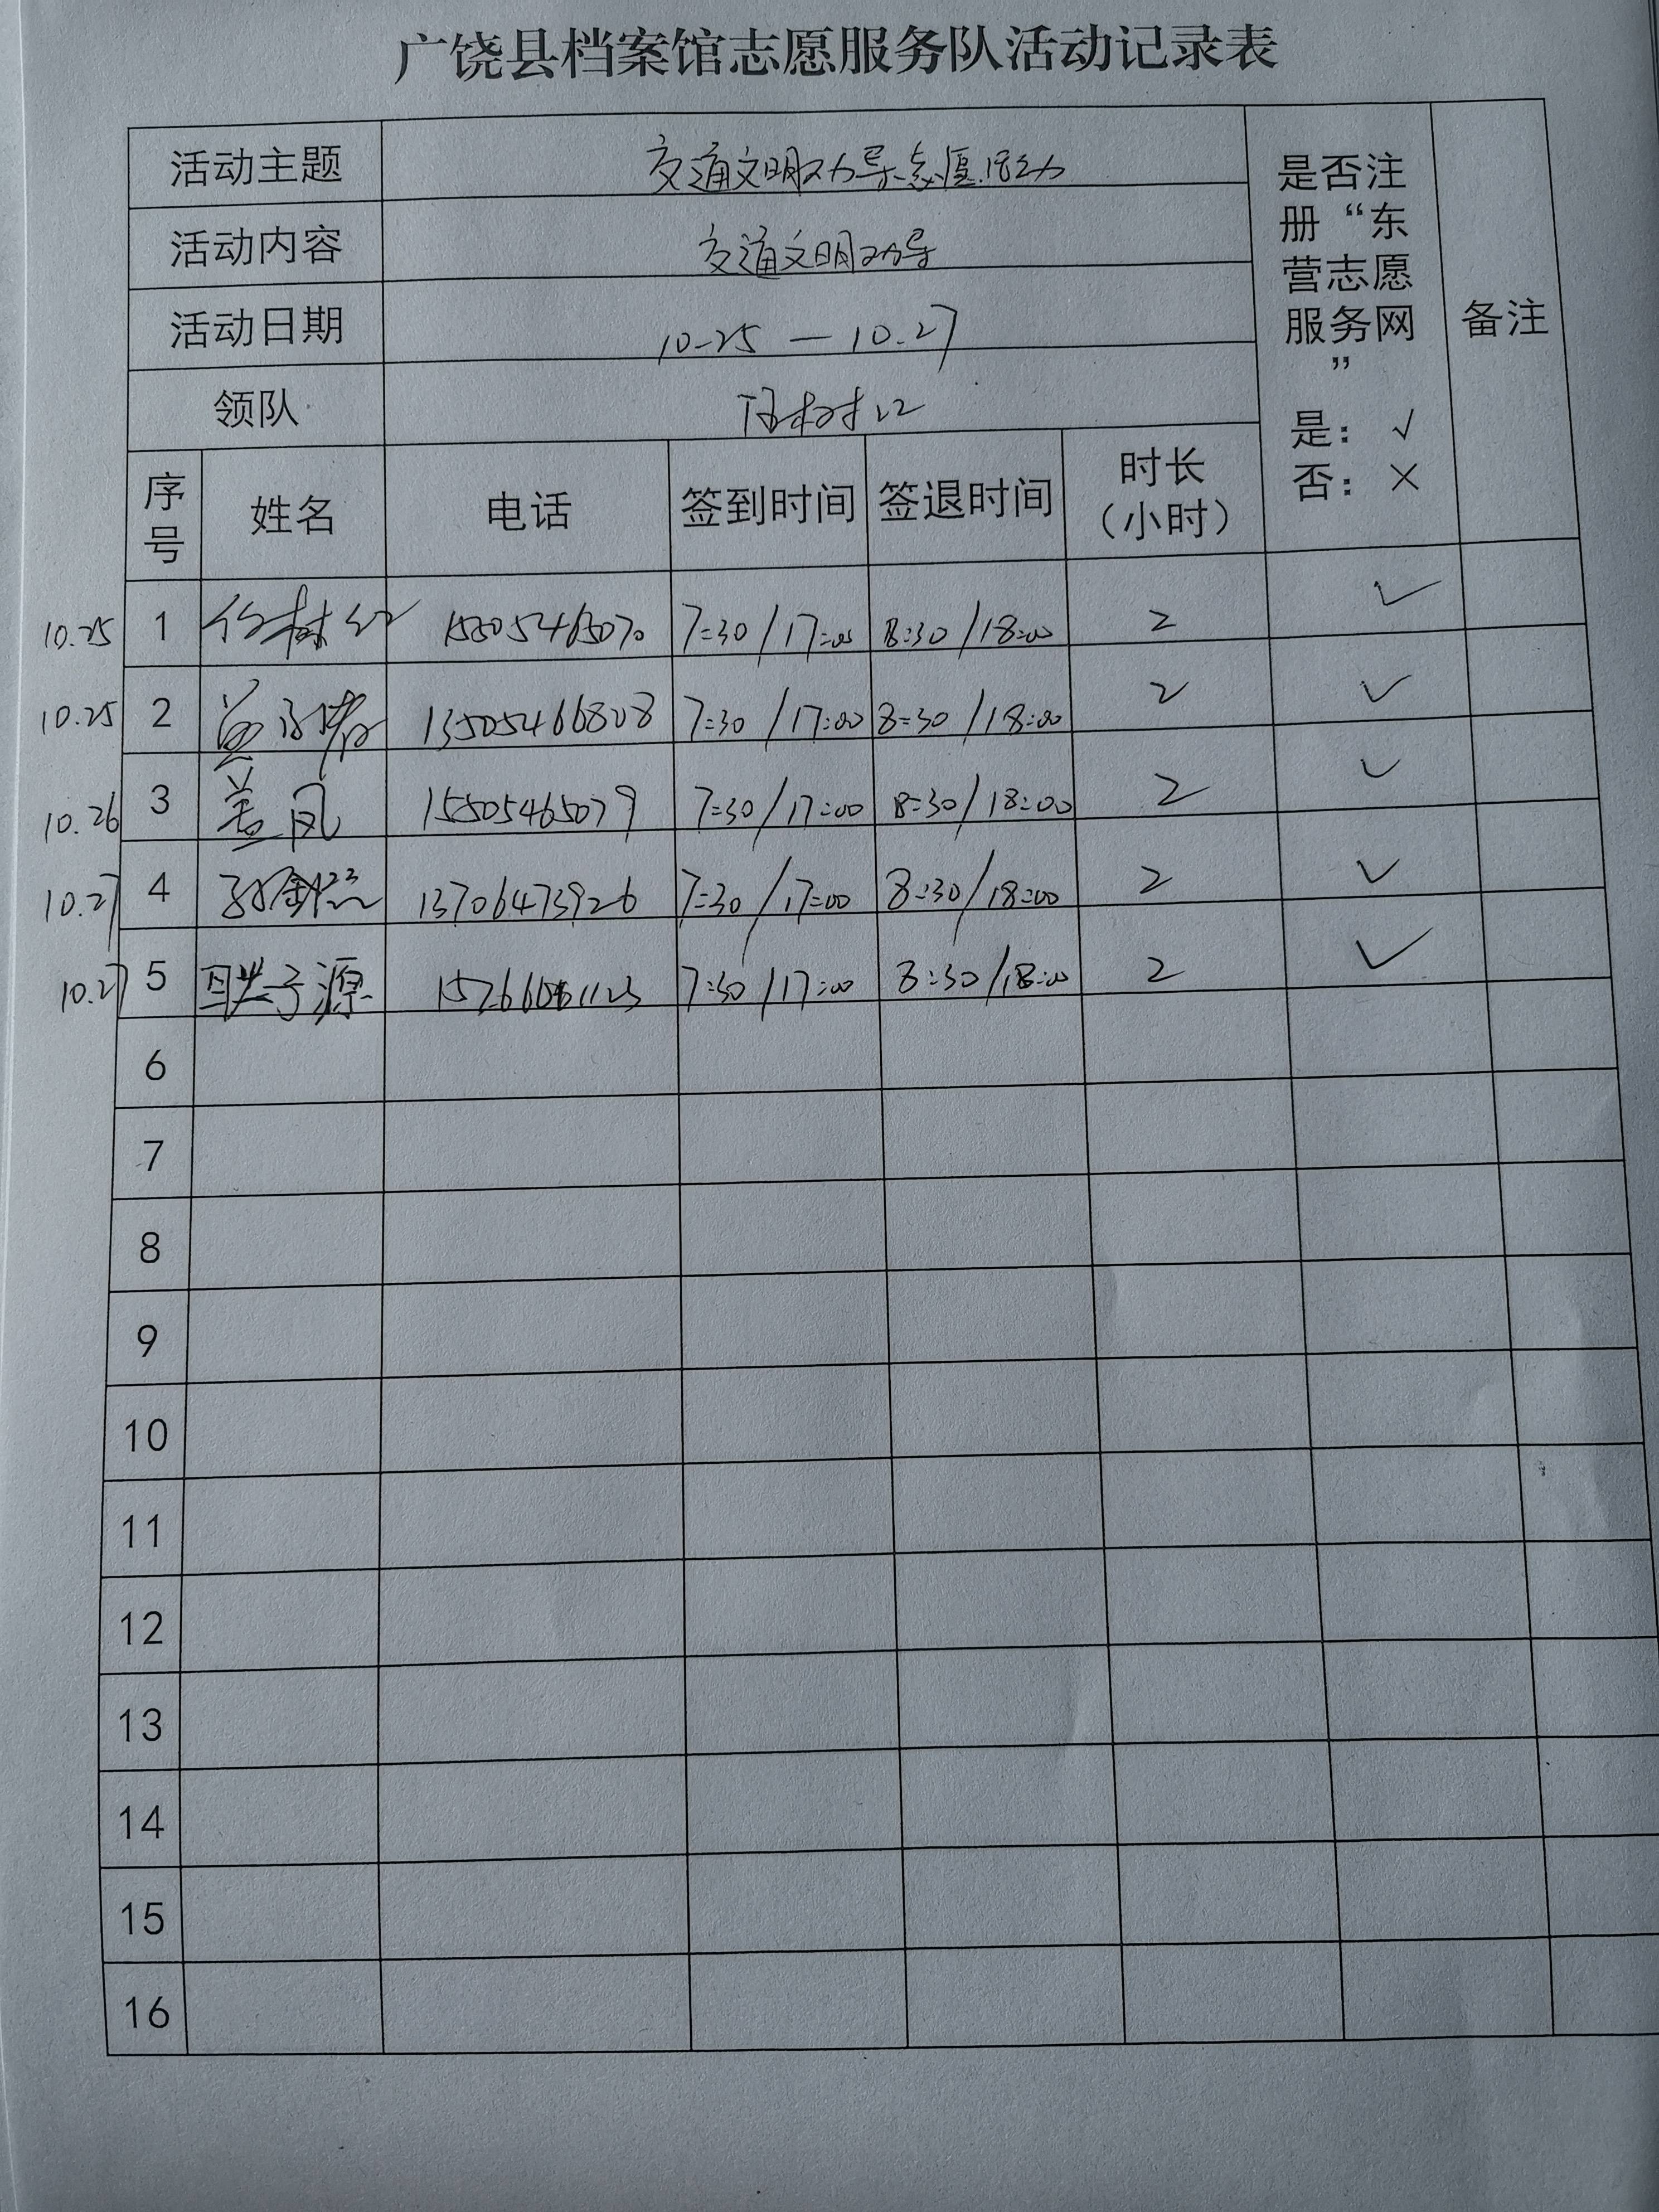 广饶县档案馆志愿服务队活动记录表
活动主题 交通文明劝导志愿活动
活动内容 交通文明劝导
活动日期 10-25 — 10.27
领队
是否注
册“东
营志愿
服务网
”
是：√
否：×
备注
序号 姓名 电话 签到时间 签退时间 时长（小时）
10.25 1 7:30/17:00 8:30/18:00 2 ✓
10.25 2 13505466808 7:30/17:00 8:30/18:00 2 ✓
10.26 3 盖凤 15505465079 7:30/17:00 8:30/18:00 2 ✓
10.27 4 13706473926 7:30/17:00 8:30/18:00 2 ✓
10.27 5 7:30/17:00 8:30/18:00 2 ✓
6
7
8
9
10
11
12
13
14
15
16